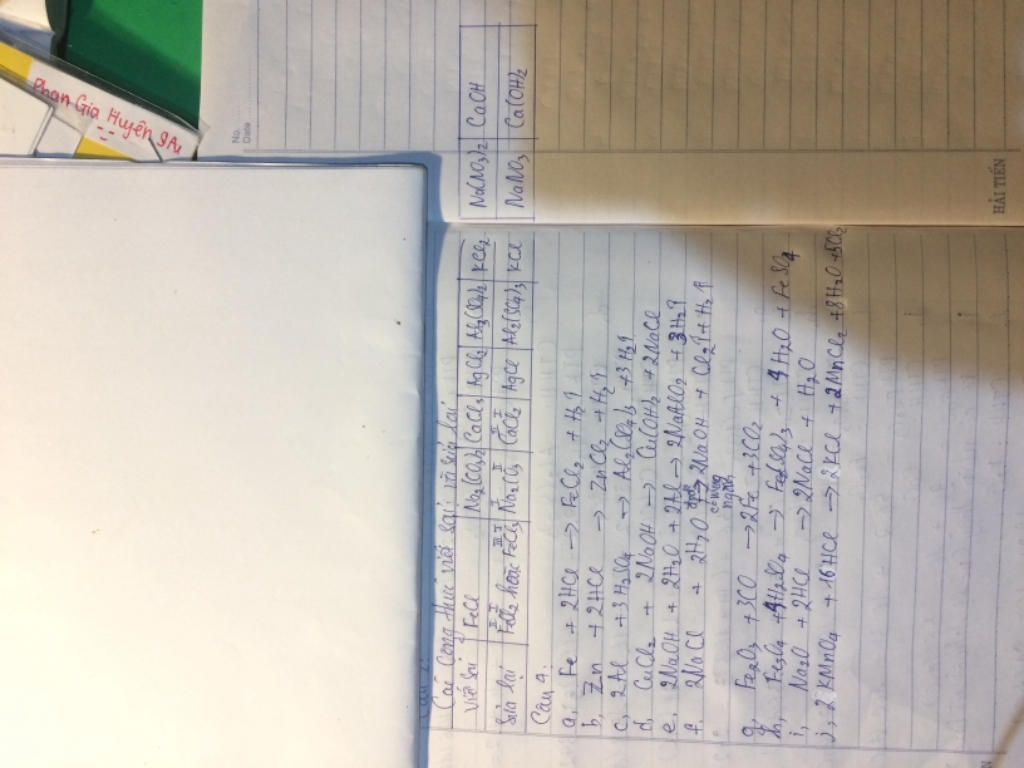 Phan Gia Huyên 9A1
No.
Date
Câu 2:
Các công thức viết sai và sửa lại
Viết sai | FeCl | Na2(CO3)2 | CaCl3 | AgCl2 | Al3(SO4)2 | KCl2 | Na(NO3)2 | CaOH
Sửa lại | FeCl2 hoặc FeCl3 | Na2CO3 | CaCl2 | AgCl | Al2(SO4)3 | KCl | NaNO3 | Ca(OH)2
Câu 4:
a, Fe + 2HCl → FeCl2 + H2↑
b, Zn + 2HCl → ZnCl2 + H2↑
c, 2Al + 3H2SO4 → Al2(SO4)3 + 3H2↑
d, CuCl2 + 2NaOH → Cu(OH)2 + 2NaCl
e, 2NaOH + 2H2O + 2Al → 2NaAlO2 + 3H2↑
f, 2NaCl + 2H2O → 2NaOH + Cl2↑ + H2↑
có màng ngăn
g, Fe2O3 + 3CO → 2Fe + 3CO2
h, Fe3O4 + 4H2SO4 → Fe2(SO4)3 + 4H2O + FeSO4
i, Na2O + 2HCl → 2NaCl + H2O
j, 2KMnO4 + 16HCl → 2KCl + 2MnCl2 + 8H2O + 5Cl2
HẢI TIẾN